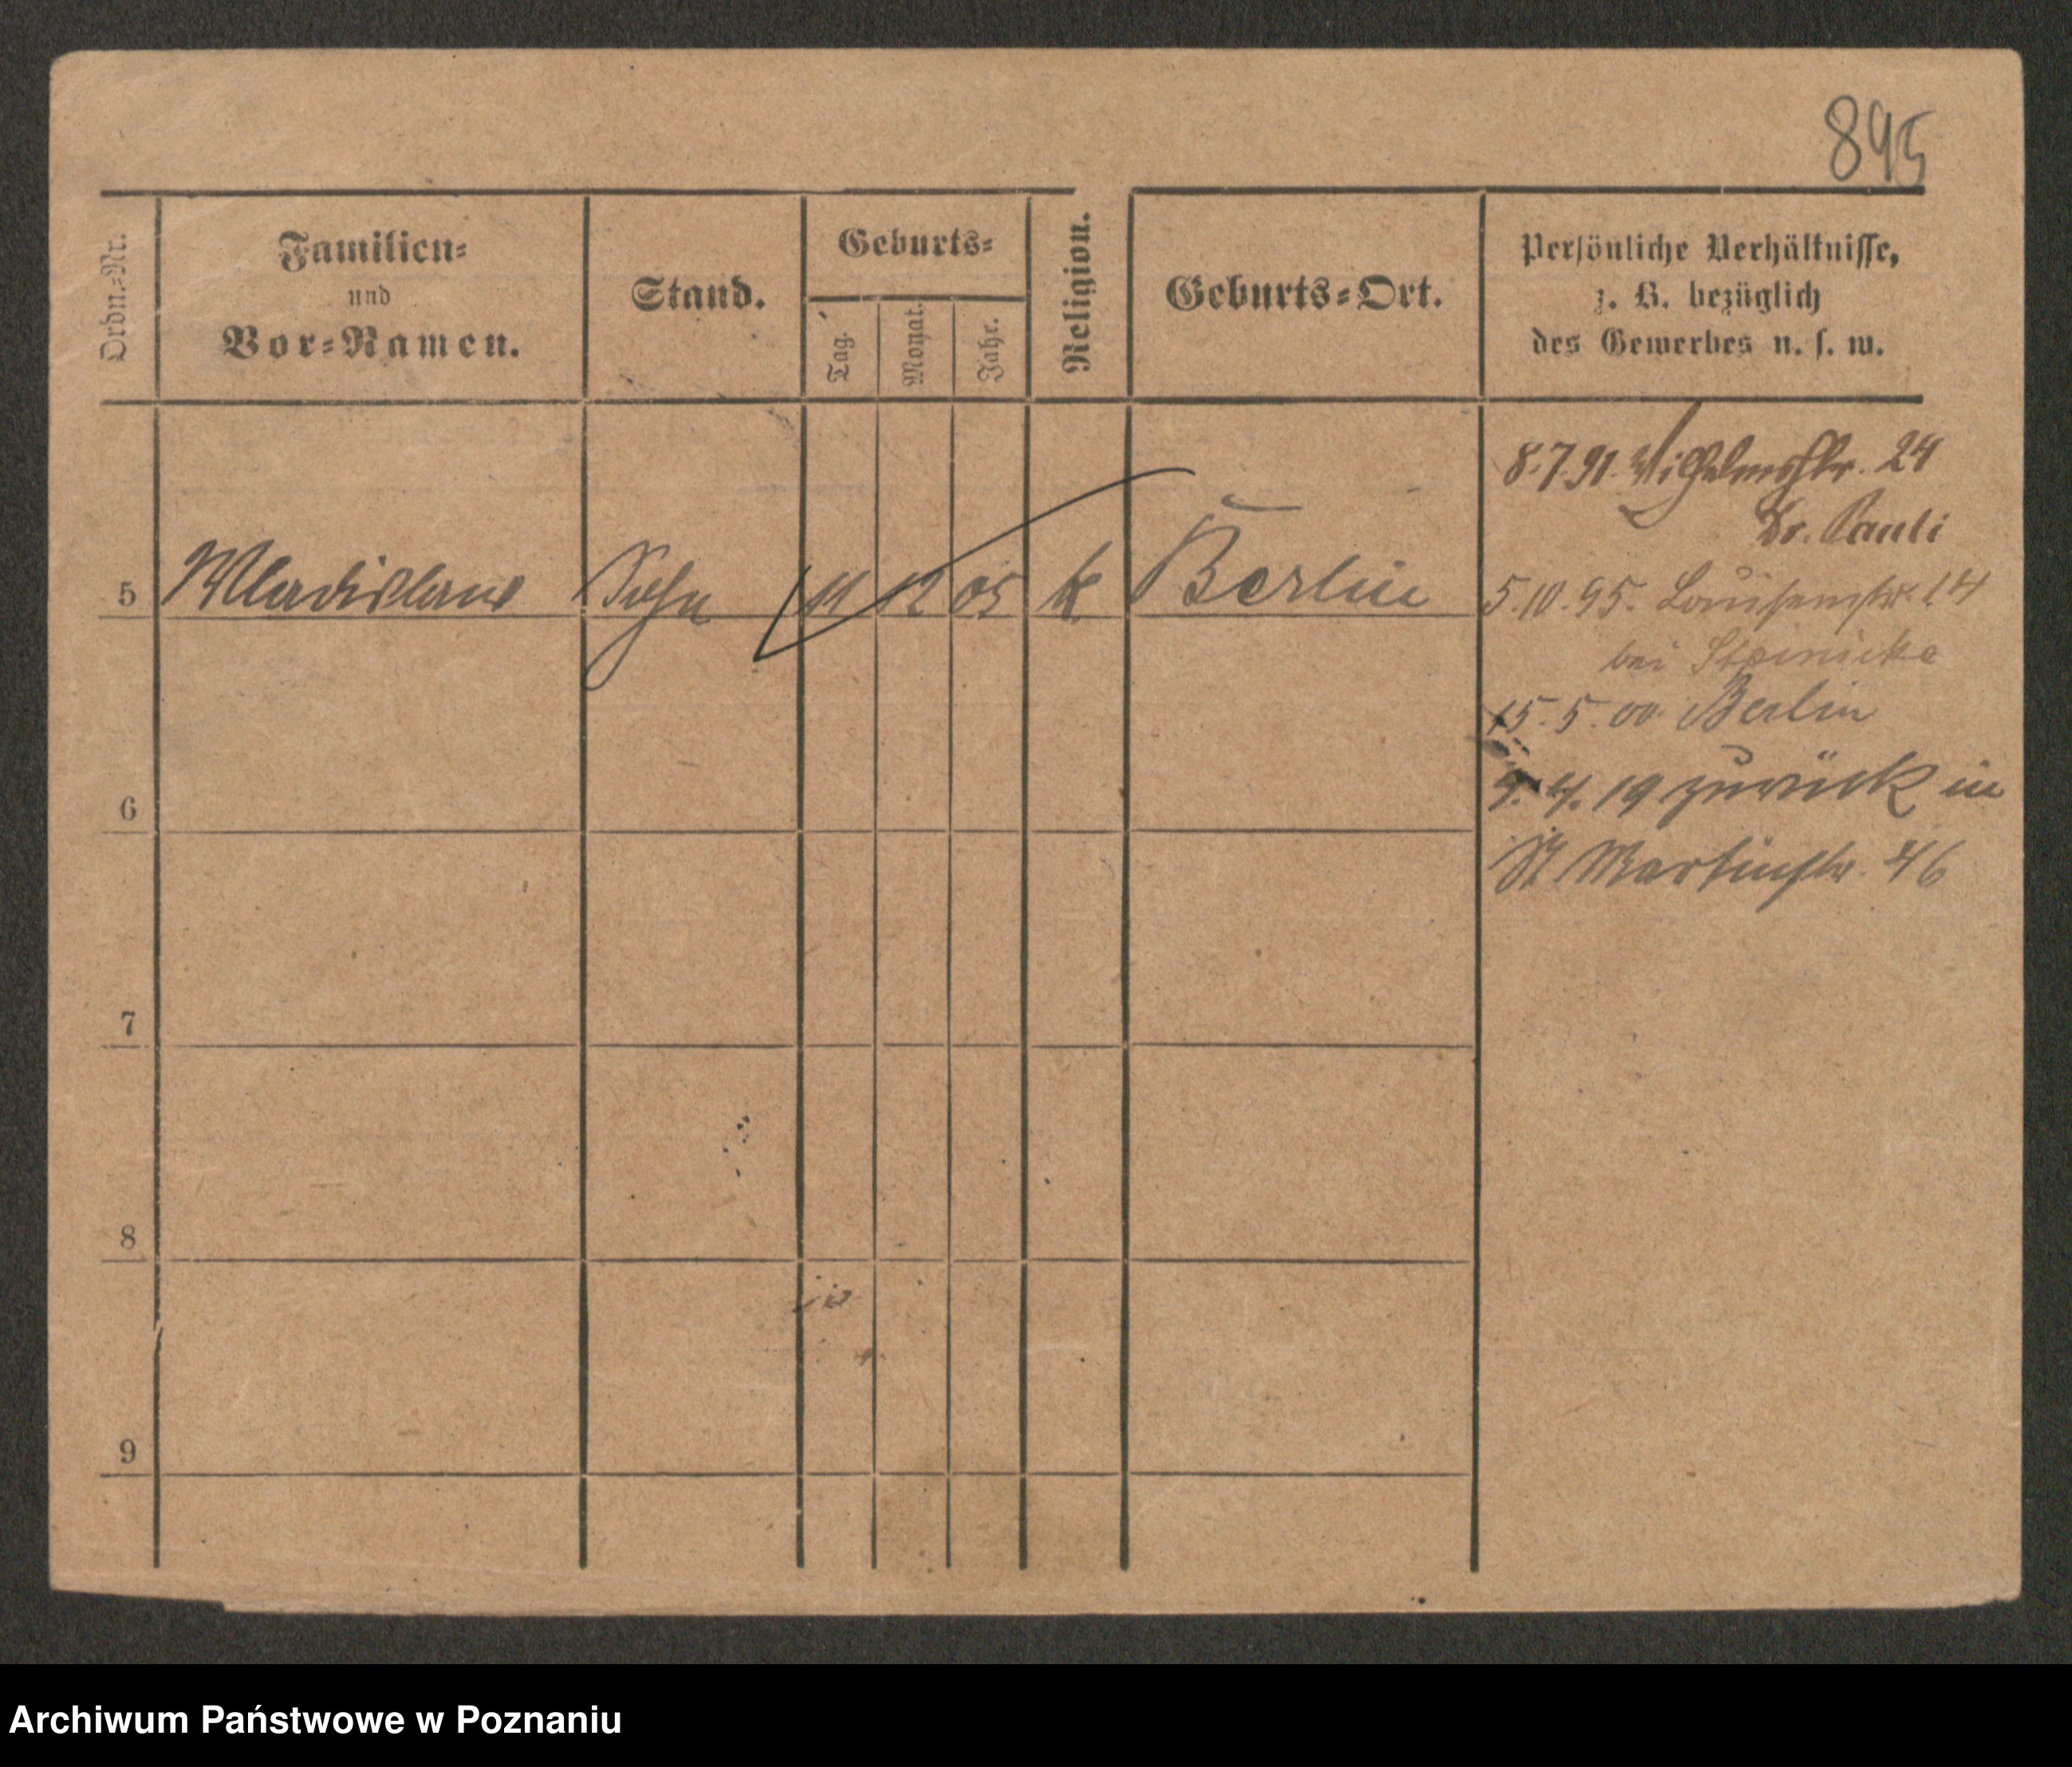 895
Ordn.-Nr.
Familien-
und
Vor-Namen.
Stand.
Geburts-
Tag.
Monat.
Jahr.
Religion.
Geburts-Ort.
Persönliche Verhältnisse,
z. B. bezüglich
des Gewerbes u. s. w.
5 Wladislaus Sohn 11 12 05 k Berlin
6
7
8
9
8.7.91. Wilhelmstr. 24
Dr. Pauli
5.10.95. Louisenstr. 14
bei Steinicke
15.5.00 Berlin
4. 19 zurück in
St Martinstr. 46
Archiwum Państwowe w Poznaniu